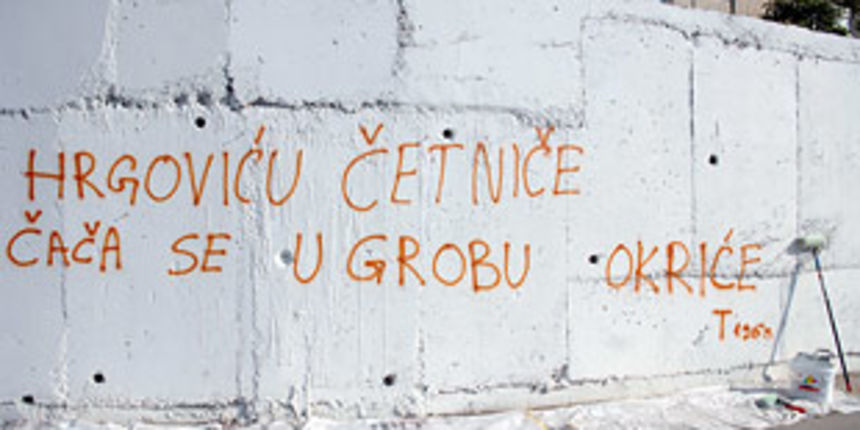 HRGOVIĆU ČETNIČE
ČAČA SE U GROBU OKRIĆE